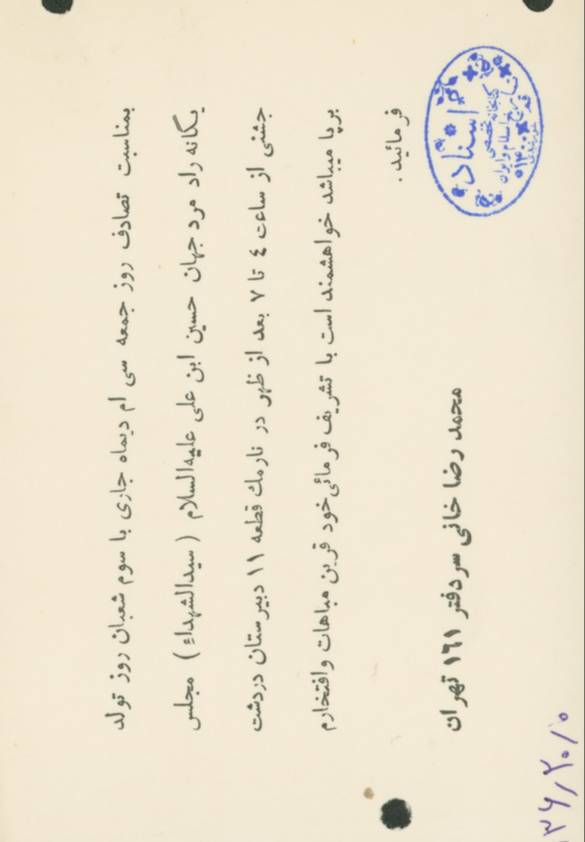 بمناسبت تصادف روز جمعه سی ام دیماه جاری با سوم شعبان روز تولد
یگانه راد مرد جهان حسین ابن علی علیه‌السلام (سیدالشهداء) مجلس
جشنی از ساعت ٤ تا ٧ بعد از ظهر در نارمك قطعه ١١ دبیرستان دردشت
برپا میباشد خواهشمند است با تشریف فرمائی خود قرین مباهات وافتخارم
فرمائید .
محمد رضا خانی سردفتر ١٦١ تهران
اسناد
کتابخانه تخصصی
تاریخ اسلام و ایران